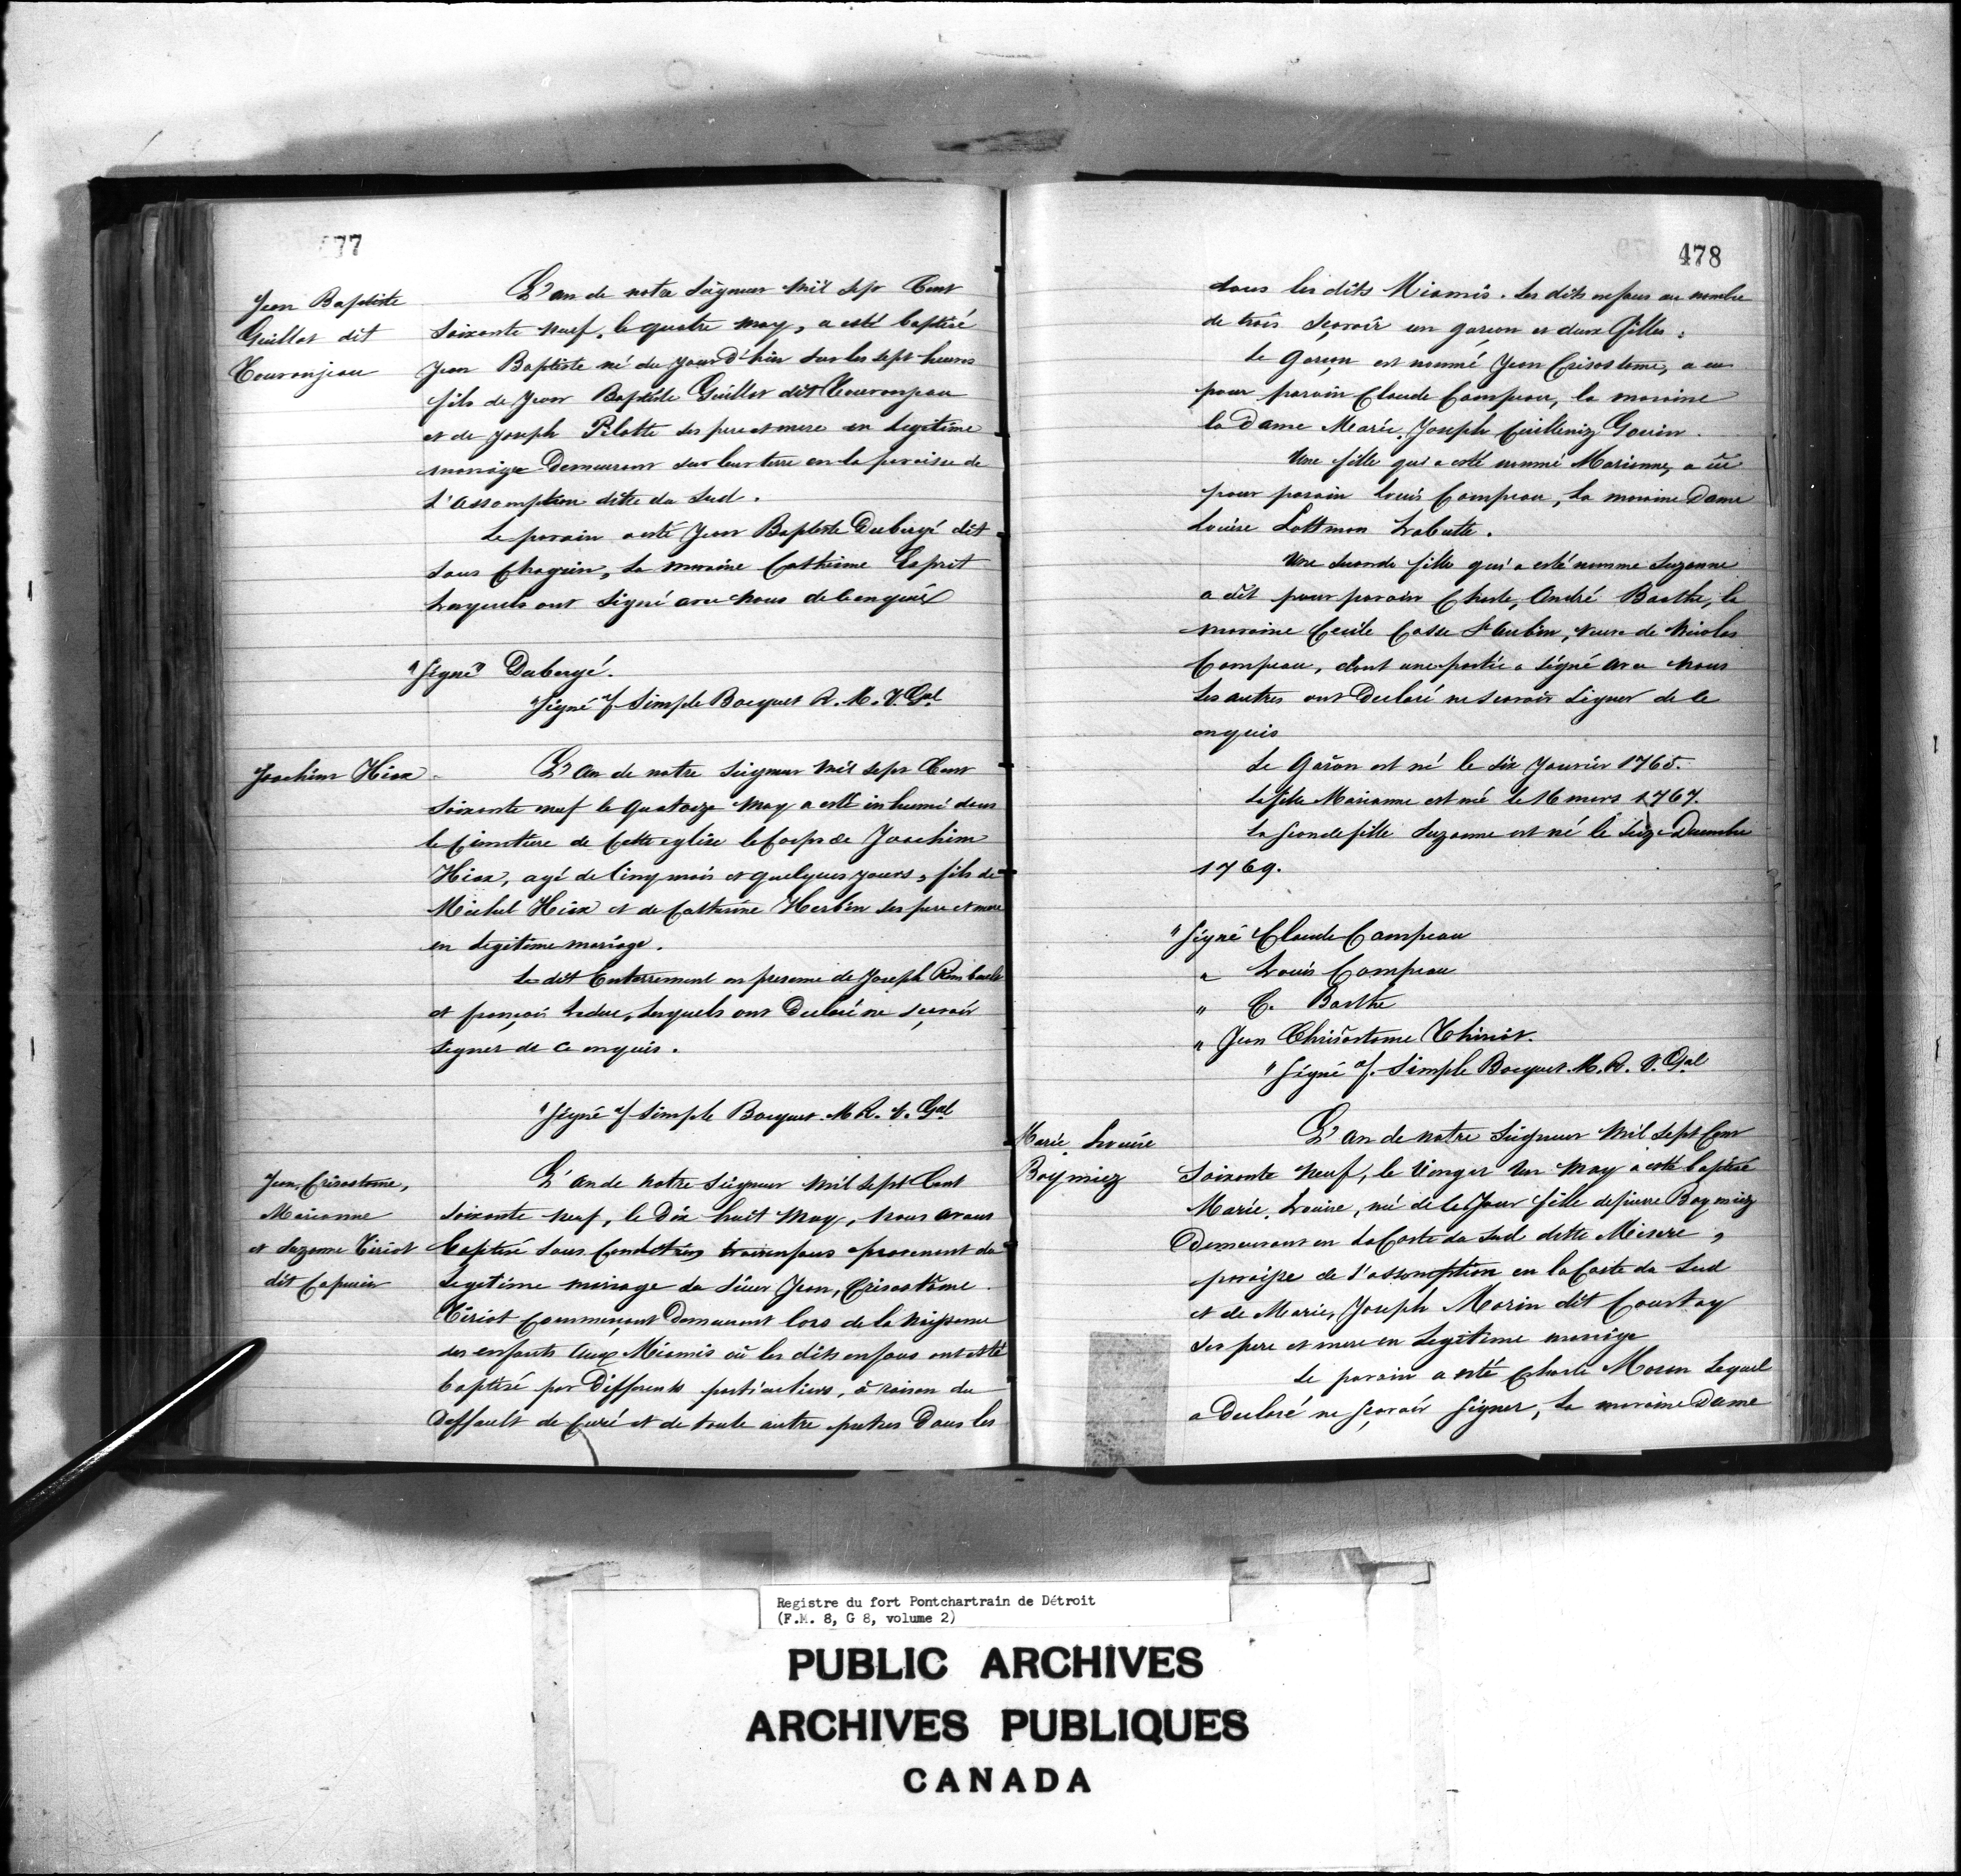 477
Jean Baptiste
Guillot dit
Touronjeau
L'an de notre Seigneur mil sept Cent
Soixante neuf, le quatre may, a esté baptisé
Jean Baptiste né du jour d'hui sur les sept heures
fils de Jean Baptiste Guillot dit Touronjeau
et de Joseph Pilotte ses pere et mere en legitime
mariage Demeurant sur leur terre en la paroisse de
l'assomption dite du Sud.
Le parain a esté Jean Baptiste Dubergé dit
Sans Chagrin, la maraine Catherine Esprit
Lesquels ont signé avec nous de ce enquis
"Signé" Dubergé.
"Signé" f. Simple Bocquet R. M. V. Gal
Joachim Hiox
L'an de notre Seigneur mil sept Cent
soixante neuf le quatorze may a esté inhumé dans
le Cimetiere de Cette eglise le Corps de Joachim
Hiox, agé de Cinq mois et quelques jours, fils de
Michel Hiox et de Catherine Herbin ses pere et mere
en legitime mariage.
Le dit Enterrement en presence de Joseph Rimbault
et françois Leduc, Lesquels ont Declaré ne sçavoir
signer de Ce enquis.
"Signé" f. Simple Bocquet M. R. V. Gal
Jean, Crisostome,
Marianne
et Suzanne Tiriot
dit Capucin
L'an de notre Seigneur mil Sept Cent
soixante neuf, le Dix huit may, nous avons
Baptisé sous Condition, trois enfans provenent du
Legitime mariage du Sieur Jean, Crisostôme
Tiriot Commerçant Demeurant lors de la naissance
des enfants aux Miamis où les dits enfans ont esté
baptisé par Differents particuliers, à raison du
Deffault de Curé et de toute autre pretres Dans les
478
dans les dits Miamis. Les dits enfans au nombre
de trois sçavoir un garçon et deux filles.
Le Garçon est nommé Jean Crisostome, a eu
pour parain Claude Campeau, la maraine
la Dame Marie, Joseph Cuilleriez Gouin.
Une fille qui a esté nommé Marianne, a eû
pour parain Louis Campeau, la maraine Dame
Louise Lottman Labutte.
Une seconde fille qui a esté nommé Suzanne
a eût pour parain Charle, André Barthe, la
maraine Cecile Casse St Aubin, veuve de Nicolas
Campeau, dont une partie a signé avec nous
Les autres ont Declaré ne scavoir signer de ce
enquis
Le Garçon est né le six janvier 1765.
La fille Marianne est née le 16 mars 1767.
La seconde fille Suzanne est né le seize Decembre
1769.
"Signé Claude Campeau
" Louis Campeau
" C. Barthe
" Jean Chrisostome Thiriot.
"Signé f. Simple Bocquet. M. R. V. Gal
Marie Louise
Boymiez
L'an de notre Seigneur mil Sept Cent
Soixante neuf, le Vingt Un may a esté baptisé
Marie, Louise, né de Ce Jour fille de pierre Boymiez
Demeurant en la Coste du Sud dette Misere,
paroisse de l'assomption en la Coste du Sud
et de Marie, Joseph Morin dit Courtoy
ses pere et mere en Legitime mariage
Le parain a esté Charle Moran Lequel
a Declaré ne sçavoir signer, la maraine Dame
Registre du fort Pontchartrain de Détroit
(F.M. 8, G 8, volume 2)
PUBLIC ARCHIVES
ARCHIVES PUBLIQUES
CANADA